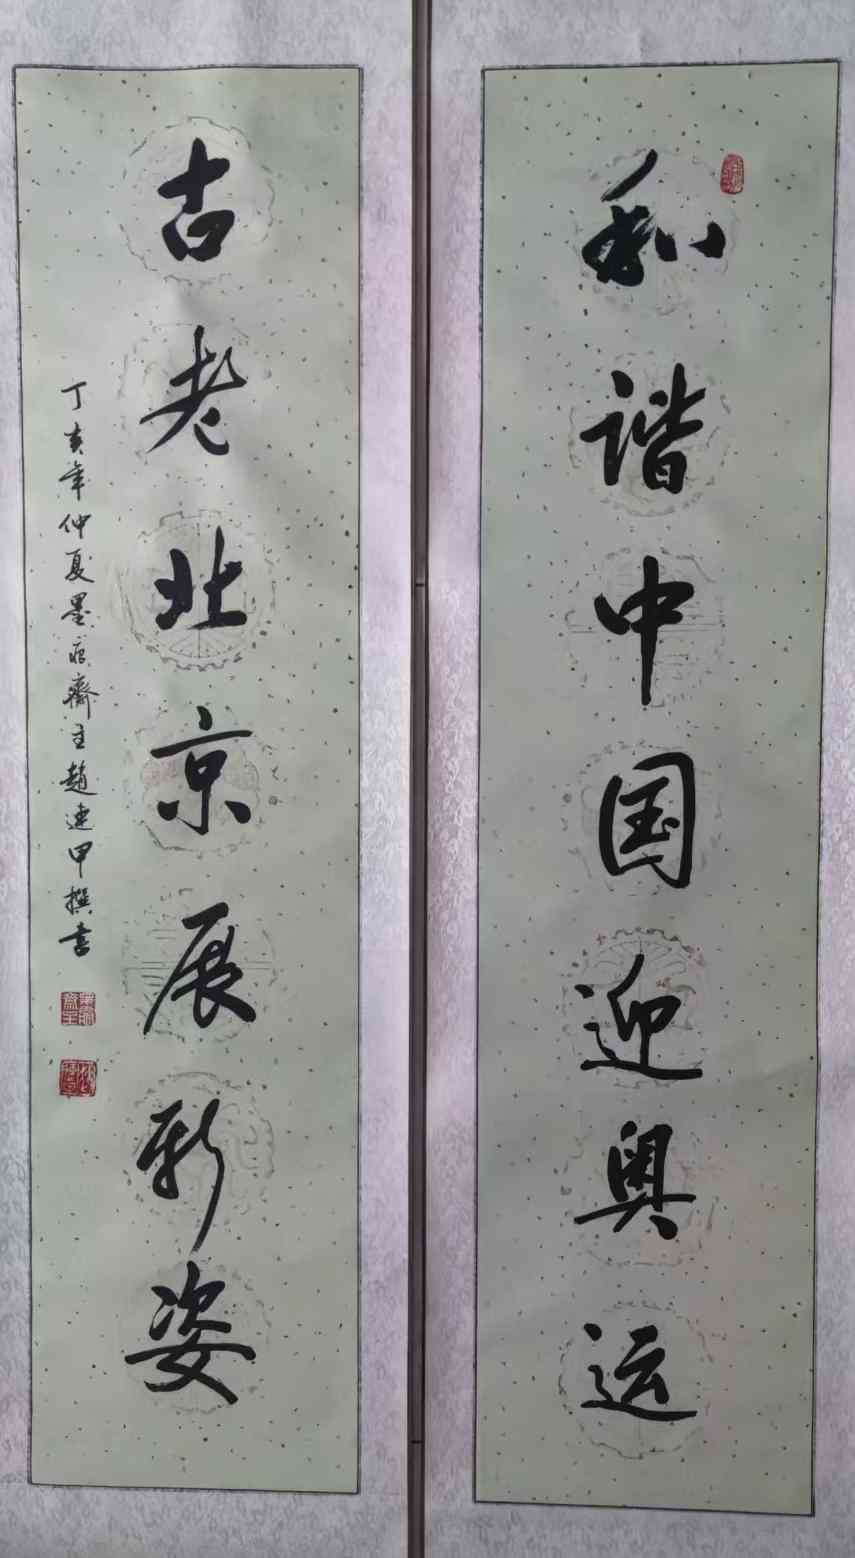 和谐中国迎奥运
古老北京展新姿
丁亥年仲夏墨痕齋主趙连甲撰书